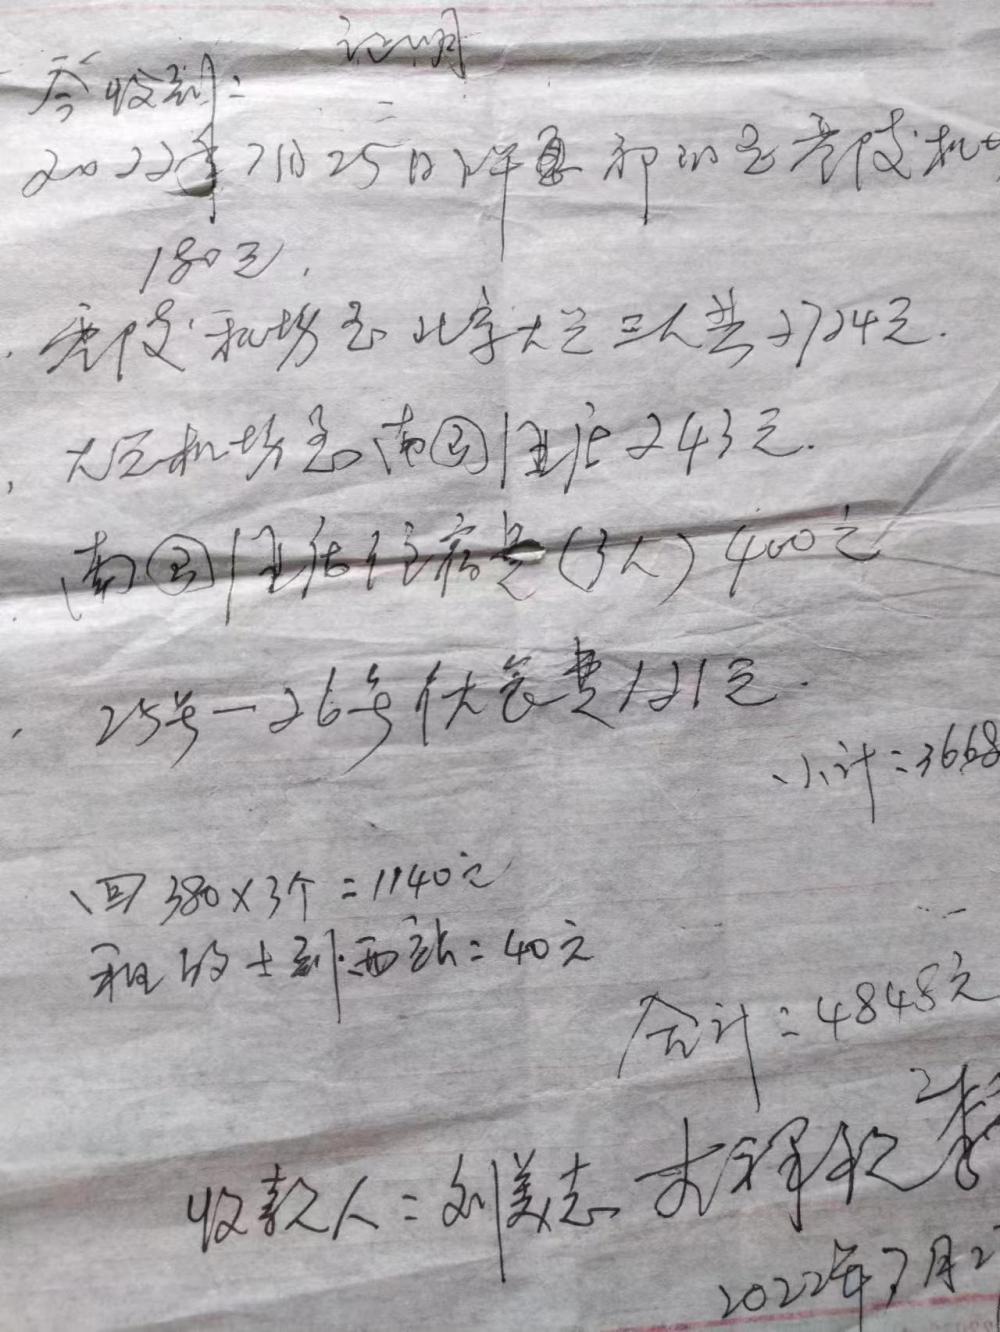 证明
今收到:
2022年7月25日 至 机
180元.
机场至北京大兴三人共2724元.
大兴机场至南国 店243元.
南国 店住宿费(3人)400元
25号-26号伙食费121元.
小计:3668
回380×3个=1140元
租的士到西站=40元
合计:4848元
收款人:刘美志
2022年7月2